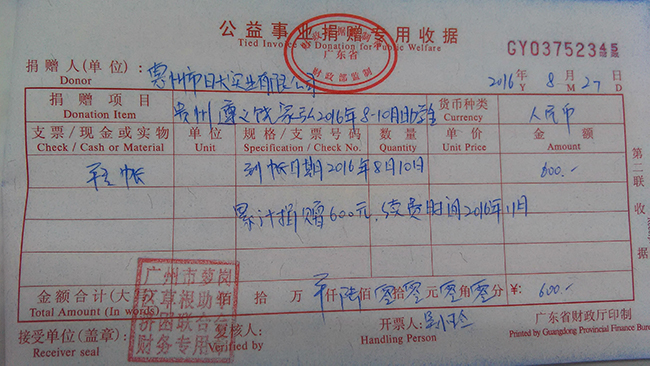 公益事业捐赠专用收据
Tied Invoice of Donation for Public Welfare
广东省
财政部监制
GY03752345
捐赠人(单位): 惠州市日大实业有限公司
Donor
2016年 8月 27日
Y M D
捐赠项目 贵州遵义钱家弘2016年8-10月助学金 货币种类 人民币
Donation Item Currency
支票/现金或实物 单位 规格/支票号码 数量 单价 金额
Check / Cash or Material Unit Specification / Check No. Quantity Unit Price Amount
转帐 到帐日期2016年8月10日 600.-
累计捐赠600元,续费时间2016年11月
第二联 收据
金额合计(大写) 佰 拾 万 仟陆佰零拾零元零角零分 ¥: 600.-
Total Amount (In words)
广州市萝岗
红草根助学
济困联合会
财务专用
接受单位(盖章): 复核人: 开票人: 广东省财政厅印制
Receiver seal Verified by Handling Person Printed by Guangdong Provincial Finance Bureau